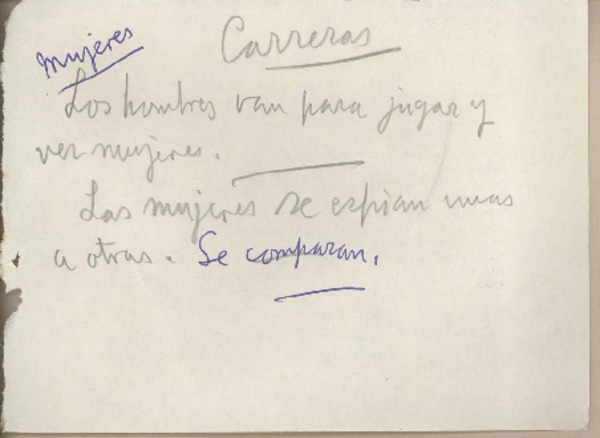 Mujeres
Carreras
Los hombres van para jugar y
ver mujeres.
Las mujeres se espian unas
a otras. Se comparan.